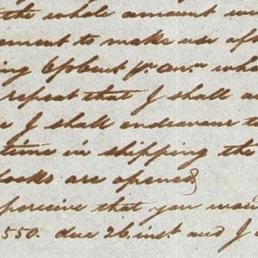 the whole amount
ment to make use of
ing 6 p Cent pr. Ann. wha
repeat that I shall a
I shall endeavour to
time in shipping the
Docks are opened
perceive that you wan
550. due 26 inst and I